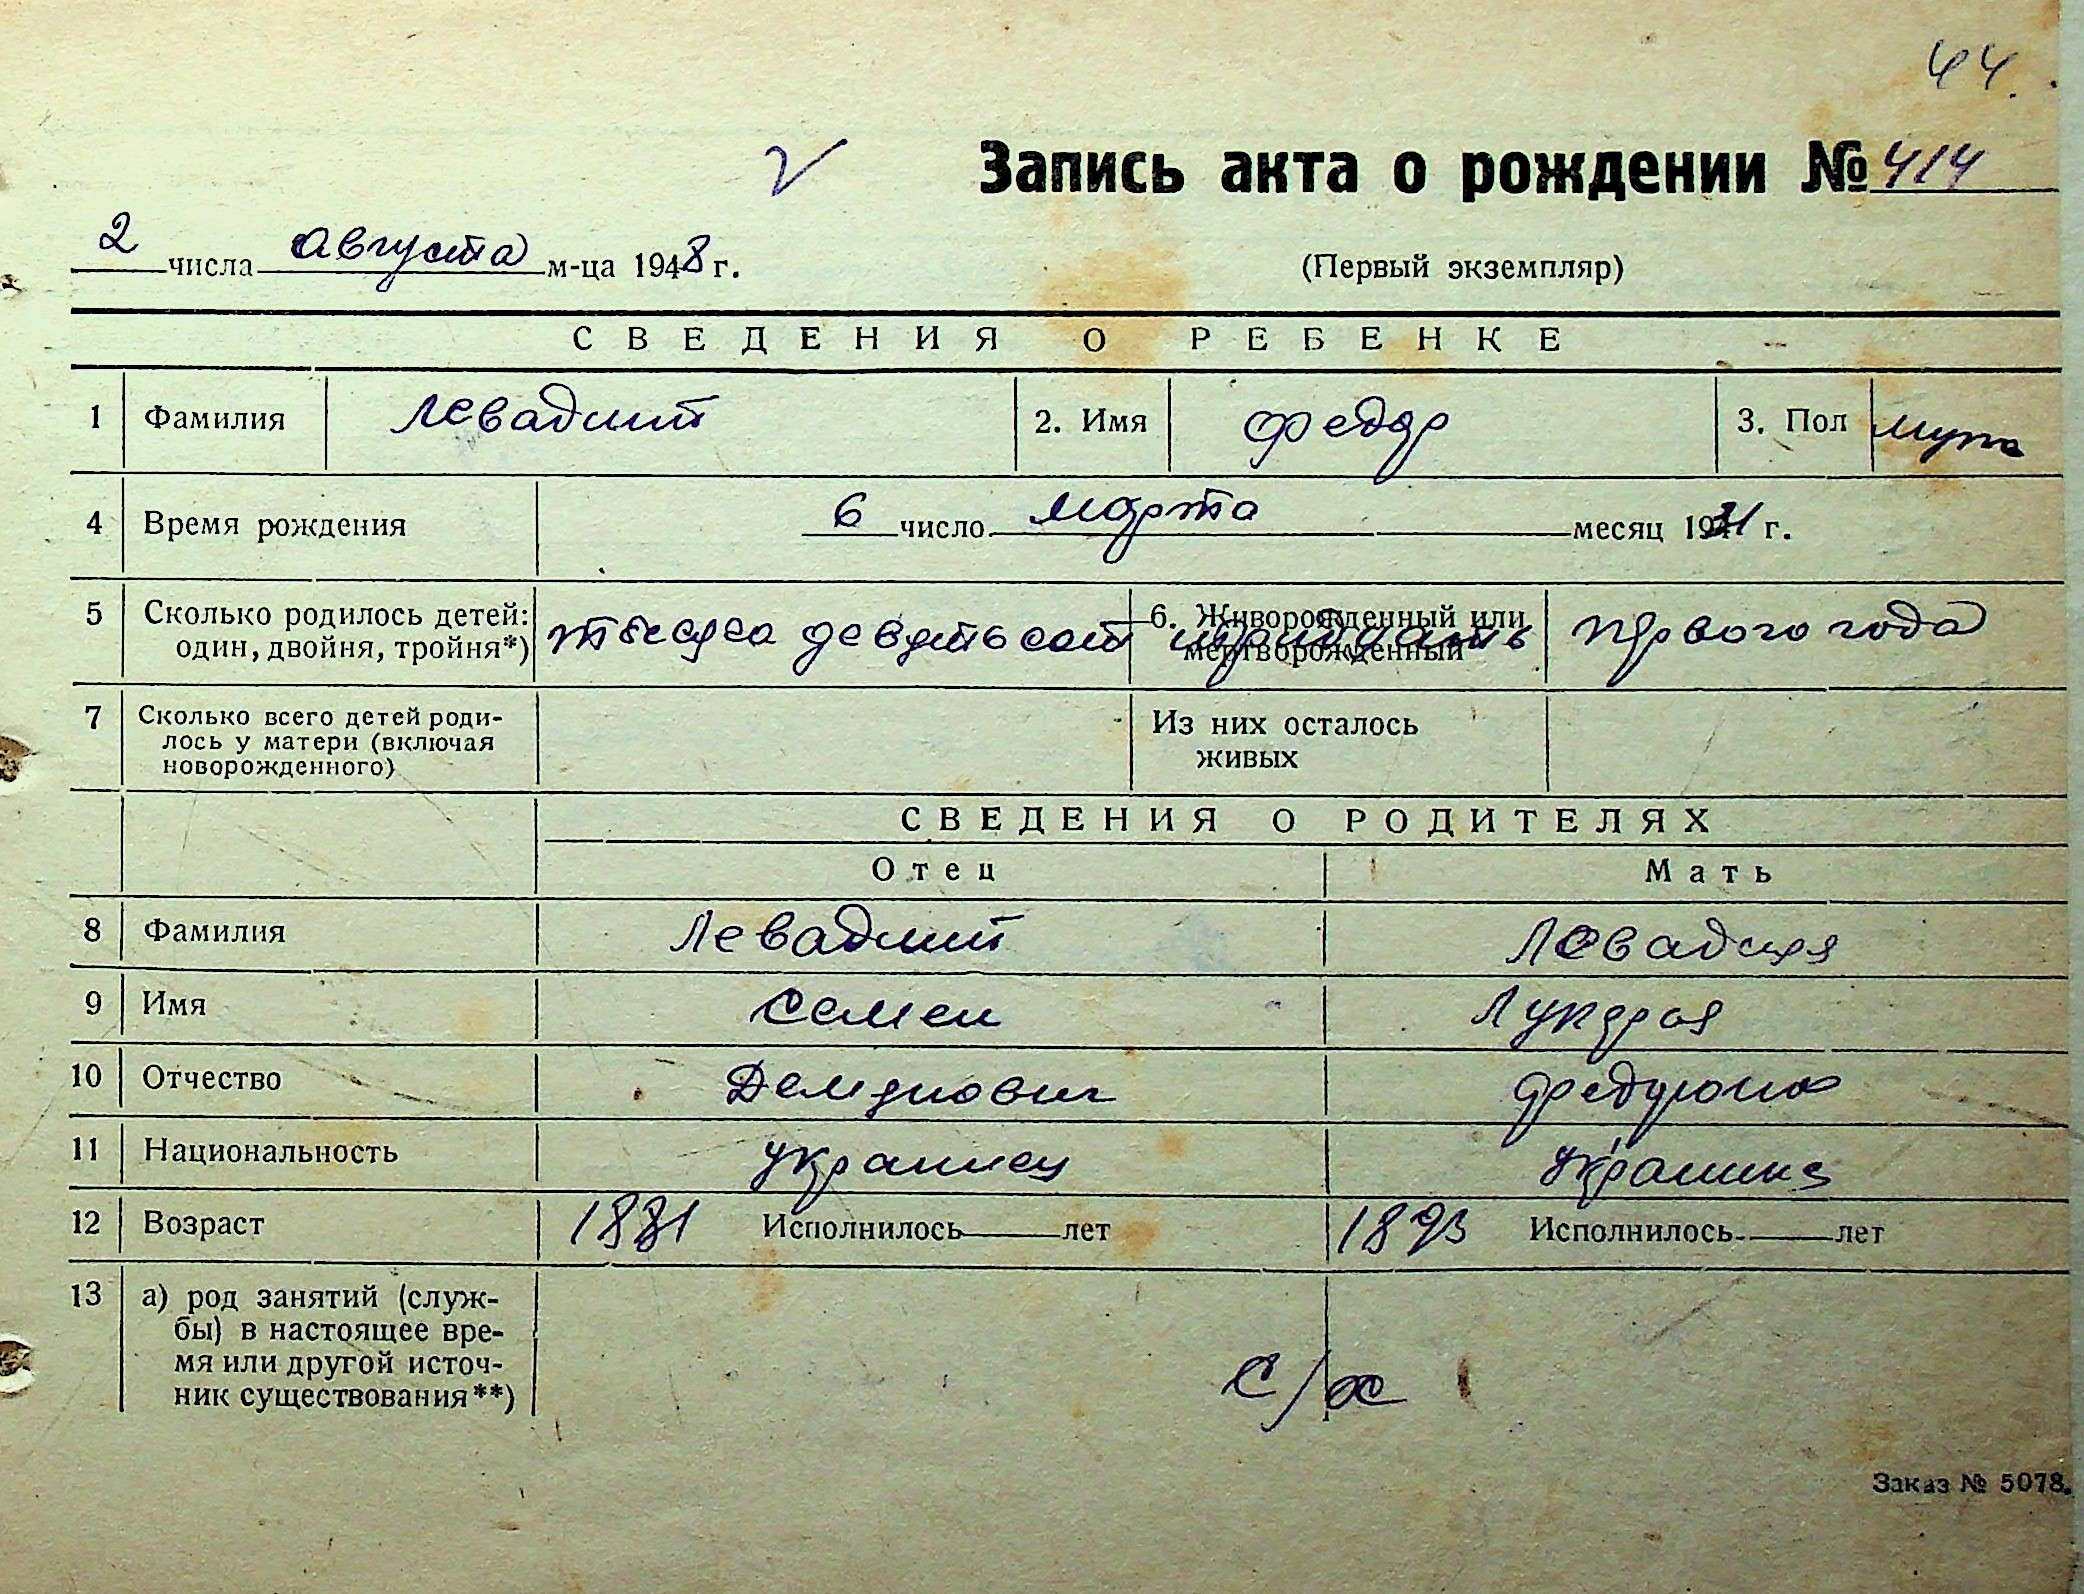 44.
Запись акта о рождении № 414
2 числа августа м-ца 1948 г.
(Первый экземпляр)
СВЕДЕНИЯ О РЕБЕНКЕ
1 Фамилия Левадний 2. Имя Федор 3. Пол муж
4 Время рождения 6 число марта месяц 1931 г.
5 Сколько родилось детей: один, двойня, тройня*) тысяча девятьсот 6. Живорожденный или мертворожденный тридцать первого года
7 Сколько всего детей роди-
лось у матери (включая
новорожденного)
Из них осталось
живых
СВЕДЕНИЯ О РОДИТЕЛЯХ
Отец Мать
8 Фамилия Левадний Левадняя
9 Имя Семен
10 Отчество Демянович
11 Национальность украинец украинка
12 Возраст 1881 Исполнилось лет 1893 Исполнилось лет
13 а) род занятий (служ-
бы) в настоящее вре-
мя или другой источ-
ник существования**)
с/х
Заказ № 5078.